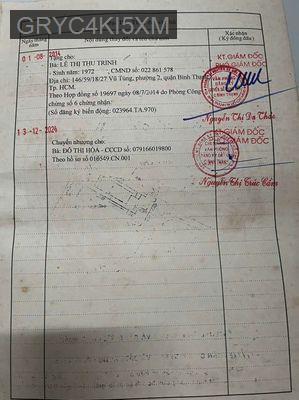 GRYC4KI5XM
Ngày tháng năm
Nội dung thay đổi và cơ sở pháp lý
Xác nhận
(Ký đóng dấu)
01-08-2014
Tặng cho:
Bà: LÊ THỊ THU TRINH
- Sinh năm: 1972 , CMND số: 022 861 578
Địa chỉ: 146/59/18/27 Vũ Tùng, phường 2, quận Bình Thạnh
Tp. HCM.
Theo Hợp đồng số 19697 ngày 08/7/2014 do Phòng Công
chứng số 6 chứng nhận.
(Số đăng ký biến động: 023964.TA.970)
KT.GIÁM ĐỐC
PHÓ GIÁM ĐỐC
Nguyễn Thị Dạ Thảo
13-12-2024
Chuyển nhượng cho:
Bà: ĐỖ THỊ HÒA - CCCD số: 079166019800
Theo hồ sơ số 016549.CN.001
KT.GIÁM ĐỐC
PHÓ GIÁM ĐỐC
CHI NHÁNH
VĂN PHÒNG
ĐĂNG KÝ ĐẤT ĐAI
Nguyễn Thị Trúc Cầm